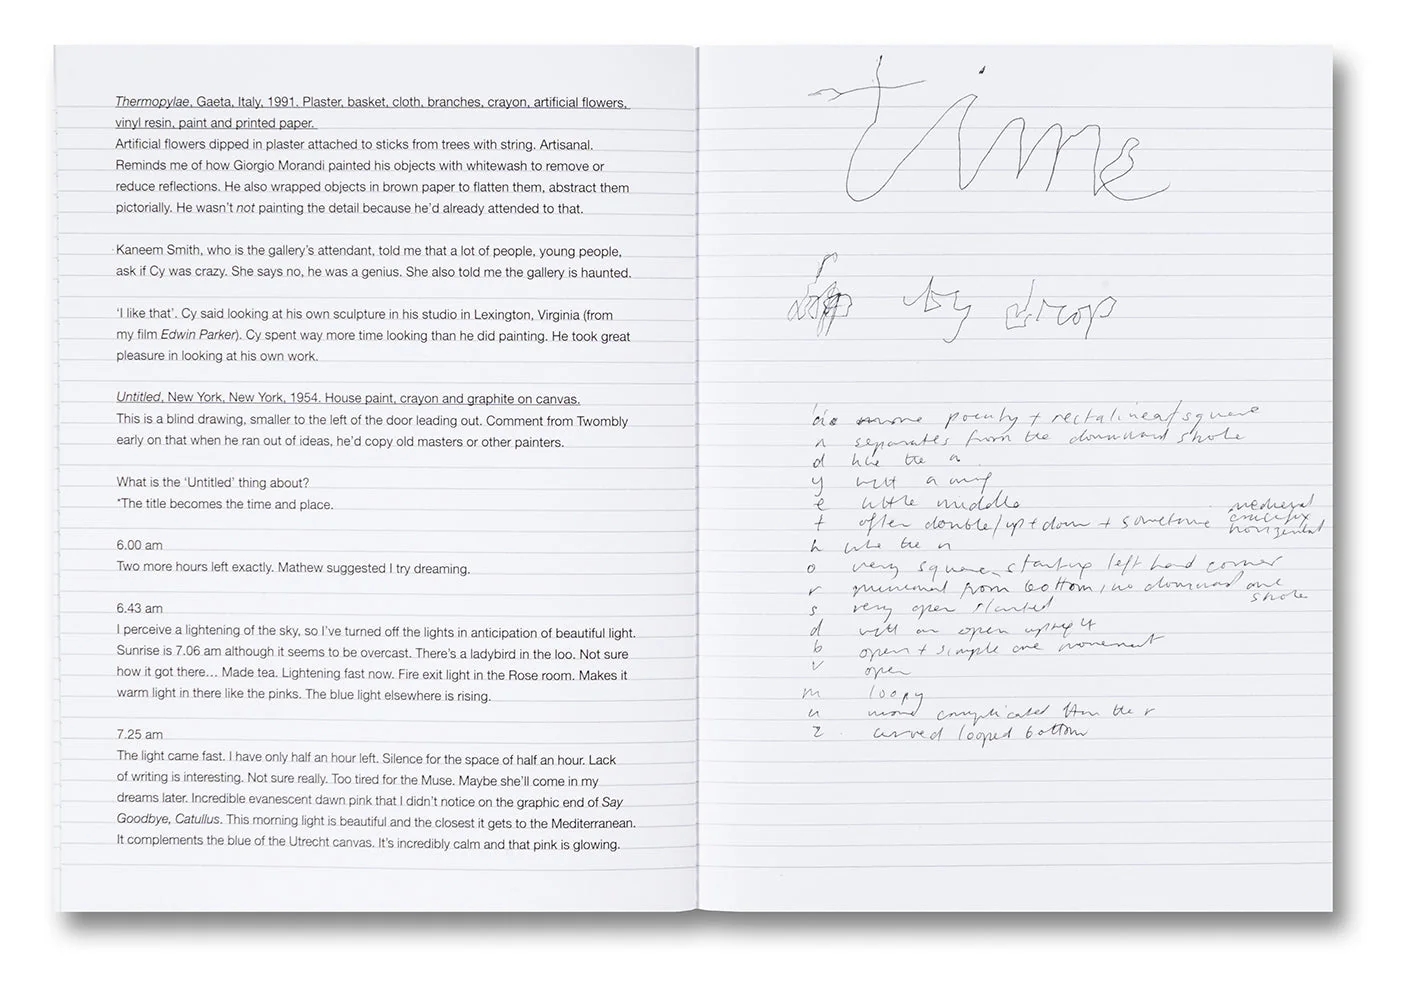 Thermopylae, Gaeta, Italy, 1991. Plaster, basket, cloth, branches, crayon, artificial flowers,
vinyl resin, paint and printed paper.
Artificial flowers dipped in plaster attached to sticks from trees with string. Artisanal.
Reminds me of how Giorgio Morandi painted his objects with whitewash to remove or
reduce reflections. He also wrapped objects in brown paper to flatten them, abstract them
pictorially. He wasn't not painting the detail because he'd already attended to that.
Kaneem Smith, who is the gallery's attendant, told me that a lot of people, young people,
ask if Cy was crazy. She says no, he was a genius. She also told me the gallery is haunted.
'I like that'. Cy said looking at his own sculpture in his studio in Lexington, Virginia (from
my film Edwin Parker). Cy spent way more time looking than he did painting. He took great
pleasure in looking at his own work.
Untitled, New York, New York, 1954. House paint, crayon and graphite on canvas.
This is a blind drawing, smaller to the left of the door leading out. Comment from Twombly
early on that when he ran out of ideas, he'd copy old masters or other painters.
What is the 'Untitled' thing about?
*The title becomes the time and place.
6.00 am
Two more hours left exactly. Mathew suggested I try dreaming.
6.43 am
I perceive a lightening of the sky, so I've turned off the lights in anticipation of beautiful light.
Sunrise is 7.06 am although it seems to be overcast. There's a ladybird in the loo. Not sure
how it got there… Made tea. Lightening fast now. Fire exit light in the Rose room. Makes it
warm light in there like the pinks. The blue light elsewhere is rising.
7.25 am
The light came fast. I have only half an hour left. Silence for the space of half an hour. Lack
of writing is interesting. Not sure really. Too tired for the Muse. Maybe she'll come in my
dreams later. Incredible evanescent dawn pink that I didn't notice on the graphic end of Say
Goodbye, Catullus. This morning light is beautiful and the closest it gets to the Mediterranean.
It complements the blue of the Utrecht canvas. It's incredibly calm and that pink is glowing.
time
by drop
more pointy + rectalinear/square
n separates from the downward stroke
d like the a
y with a
e little middle
t often double/up + down + sometime medieval
crucifix
horizontal
h like the n
o very square, starting left hand corner
r from bottom, no downward one
stroke
s very open slanted
d with an open upright
b open + simple one movement
v open
m loopy
u more complicated than the r
z curved looped bottom